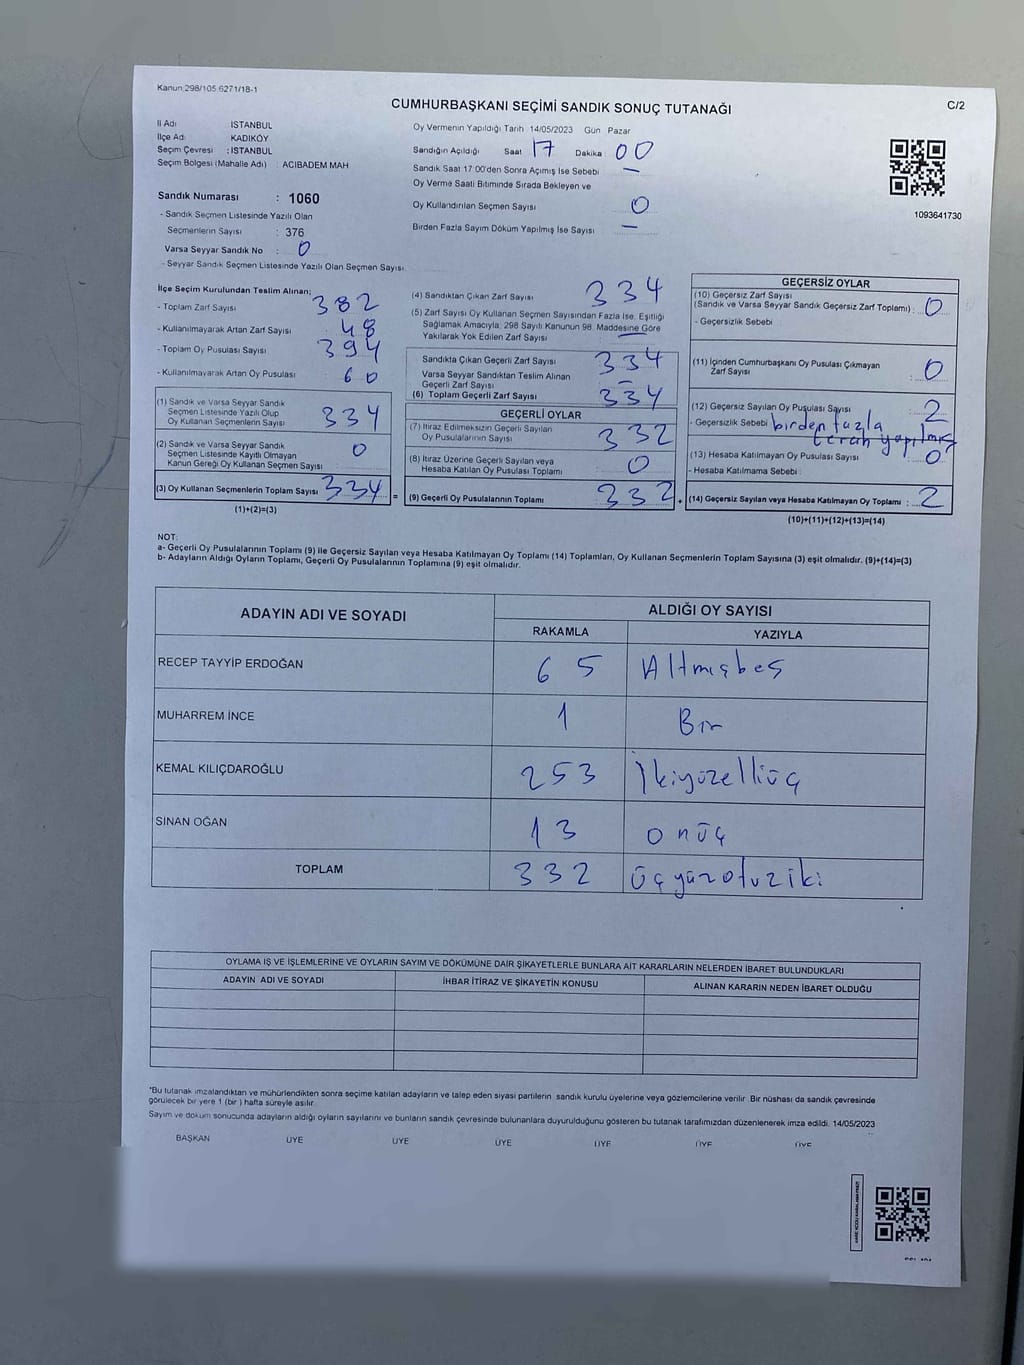 Kanun 298/105 6271/18-1
CUMHURBAŞKANI SEÇİMİ SANDIK SONUÇ TUTANAĞI
C/2
İl Adı : İSTANBUL
İlçe Adı : KADIKÖY
Seçim Çevresi : İSTANBUL
Seçim Bölgesi (Mahalle Adı) : ACIBADEM MAH
Sandık Numarası : 1060
- Sandık Seçmen Listesinde Yazılı Olan
Seçmenlerin Sayısı : 376
Varsa Seyyar Sandık No : 0
- Seyyar Sandık Seçmen Listesinde Yazılı Olan Seçmen Sayısı:
Oy Vermenin Yapıldığı Tarih 14/05/2023 Gün Pazar
Sandığın Açıldığı Saat 17 Dakika : 00
Sandık Saat 17 00'den Sonra Açımış İse Sebebi —
Oy Verme Saati Bitiminde Sırada Bekleyen ve
Oy Kullandırılan Seçmen Sayısı 0
Birden Fazla Sayım Döküm Yapılmış İse Sayısı —
1093641730
İlçe Seçim Kurulundan Teslim Alınan;
- Toplam Zarf Sayısı 382
- Kullanılmayarak Artan Zarf Sayısı : 48
- Toplam Oy Pusulası Sayısı 394
- Kullanılmayarak Artan Oy Pusulası : 60
(1) Sandık ve Varsa Seyyar Sandık
Seçmen Listesinde Yazılı Olup
Oy Kullanan Seçmenlerin Sayısı 334
(2) Sandık ve Varsa Seyyar Sandık
Seçmen Listesinde Kayıtlı Olmayan
Kanun Gereği Oy Kullanan Seçmen Sayısı : 0
(3) Oy Kullanan Seçmenlerin Toplam Sayısı 334 =
(1)+(2)=(3)
(4) Sandıktan Çıkan Zarf Sayısı 334
(5) Zarf Sayısı Oy Kullanan Seçmen Sayısından Fazla İse, Eşitliği
Sağlamak Amacıyla, 298 Sayılı Kanunun 98. Maddesine Göre
Yakılarak Yok Edilen Zarf Sayısı —
Sandıkta Çıkan Geçerli Zarf Sayısı 334
Varsa Seyyar Sandıktan Teslim Alınan
Geçerli Zarf Sayısı —
(6) Toplam Geçerli Zarf Sayısı 334
GEÇERLİ OYLAR
(7) İtiraz Edilmeksizin Geçerli Sayılan
Oy Pusulalarının Sayısı 332
(8) İtiraz Üzerine Geçerli Sayılan veya
Hesaba Katılan Oy Pusulası Toplamı 0
(9) Geçerli Oy Pusulalarının Toplamı 332 +
GEÇERSİZ OYLAR
(10) Geçersiz Zarf Sayısı
(Sandık ve Varsa Seyyar Sandık Geçersiz Zarf Toplamı) : 0
- Geçersizlik Sebebi
(11) İçinden Cumhurbaşkanı Oy Pusulası Çıkmayan
Zarf Sayısı : 0
(12) Geçersiz Sayılan Oy Pusulası Sayısı : 2
- Geçersizlik Sebebi birden fazla
tercih yapılmış
(13) Hesaba Katılmayan Oy Pusulası Sayısı : 0
- Hesaba Katılmama Sebebi :
(14) Geçersiz Sayılan veya Hesaba Katılmayan Oy Toplamı : 2
(10)+(11)+(12)+(13)=(14)
NOT:
a- Geçerli Oy Pusulalarının Toplamı (9) ile Geçersiz Sayılan veya Hesaba Katılmayan Oy Toplamı (14) Toplamları, Oy Kullanan Seçmenlerin Toplam Sayısına (3) eşit olmalıdır. (9)+(14)=(3)
b- Adayların Aldığı Oyların Toplamı, Geçerli Oy Pusulalarının Toplamına (9) eşit olmalıdır.
ADAYIN ADI VE SOYADI
ALDIĞI OY SAYISI
RAKAMLA YAZIYLA
RECEP TAYYİP ERDOĞAN 65 Altmışbeş
MUHARREM İNCE 1 Bir
KEMAL KILIÇDAROĞLU 253 İkiyüzelliüç
SİNAN OĞAN 13 onüç
TOPLAM 332 üçyüzotuziki
OYLAMA İŞ VE İŞLEMLERİNE VE OYLARIN SAYIM VE DÖKÜMÜNE DAİR ŞİKAYETLERLE BUNLARA AİT KARARLARIN NELERDEN İBARET BULUNDUKLARI
ADAYIN ADI VE SOYADI İHBAR İTİRAZ VE ŞİKAYETİN KONUSU ALINAN KARARIN NEDEN İBARET OLDUĞU
*Bu tutanak imzalandıktan ve mühürlendikten sonra seçime katılan adayların ve talep eden siyasi partilerin sandık kurulu üyelerine veya gözlemcilerine verilir. Bir nüshası da sandık çevresinde
görülecek bir yere 1 (bir ) hafta süreyle asılır.
Sayım ve döküm sonucunda adayların aldığı oyların sayılarını ve bunların sandık çevresinde bulunanlara duyurulduğunu gösteren bu tutanak tarafımızdan düzenlenerek imza edildi. 14/05/2023
BAŞKAN ÜYE ÜYE ÜYE ÜYE ÜYE ÜYE